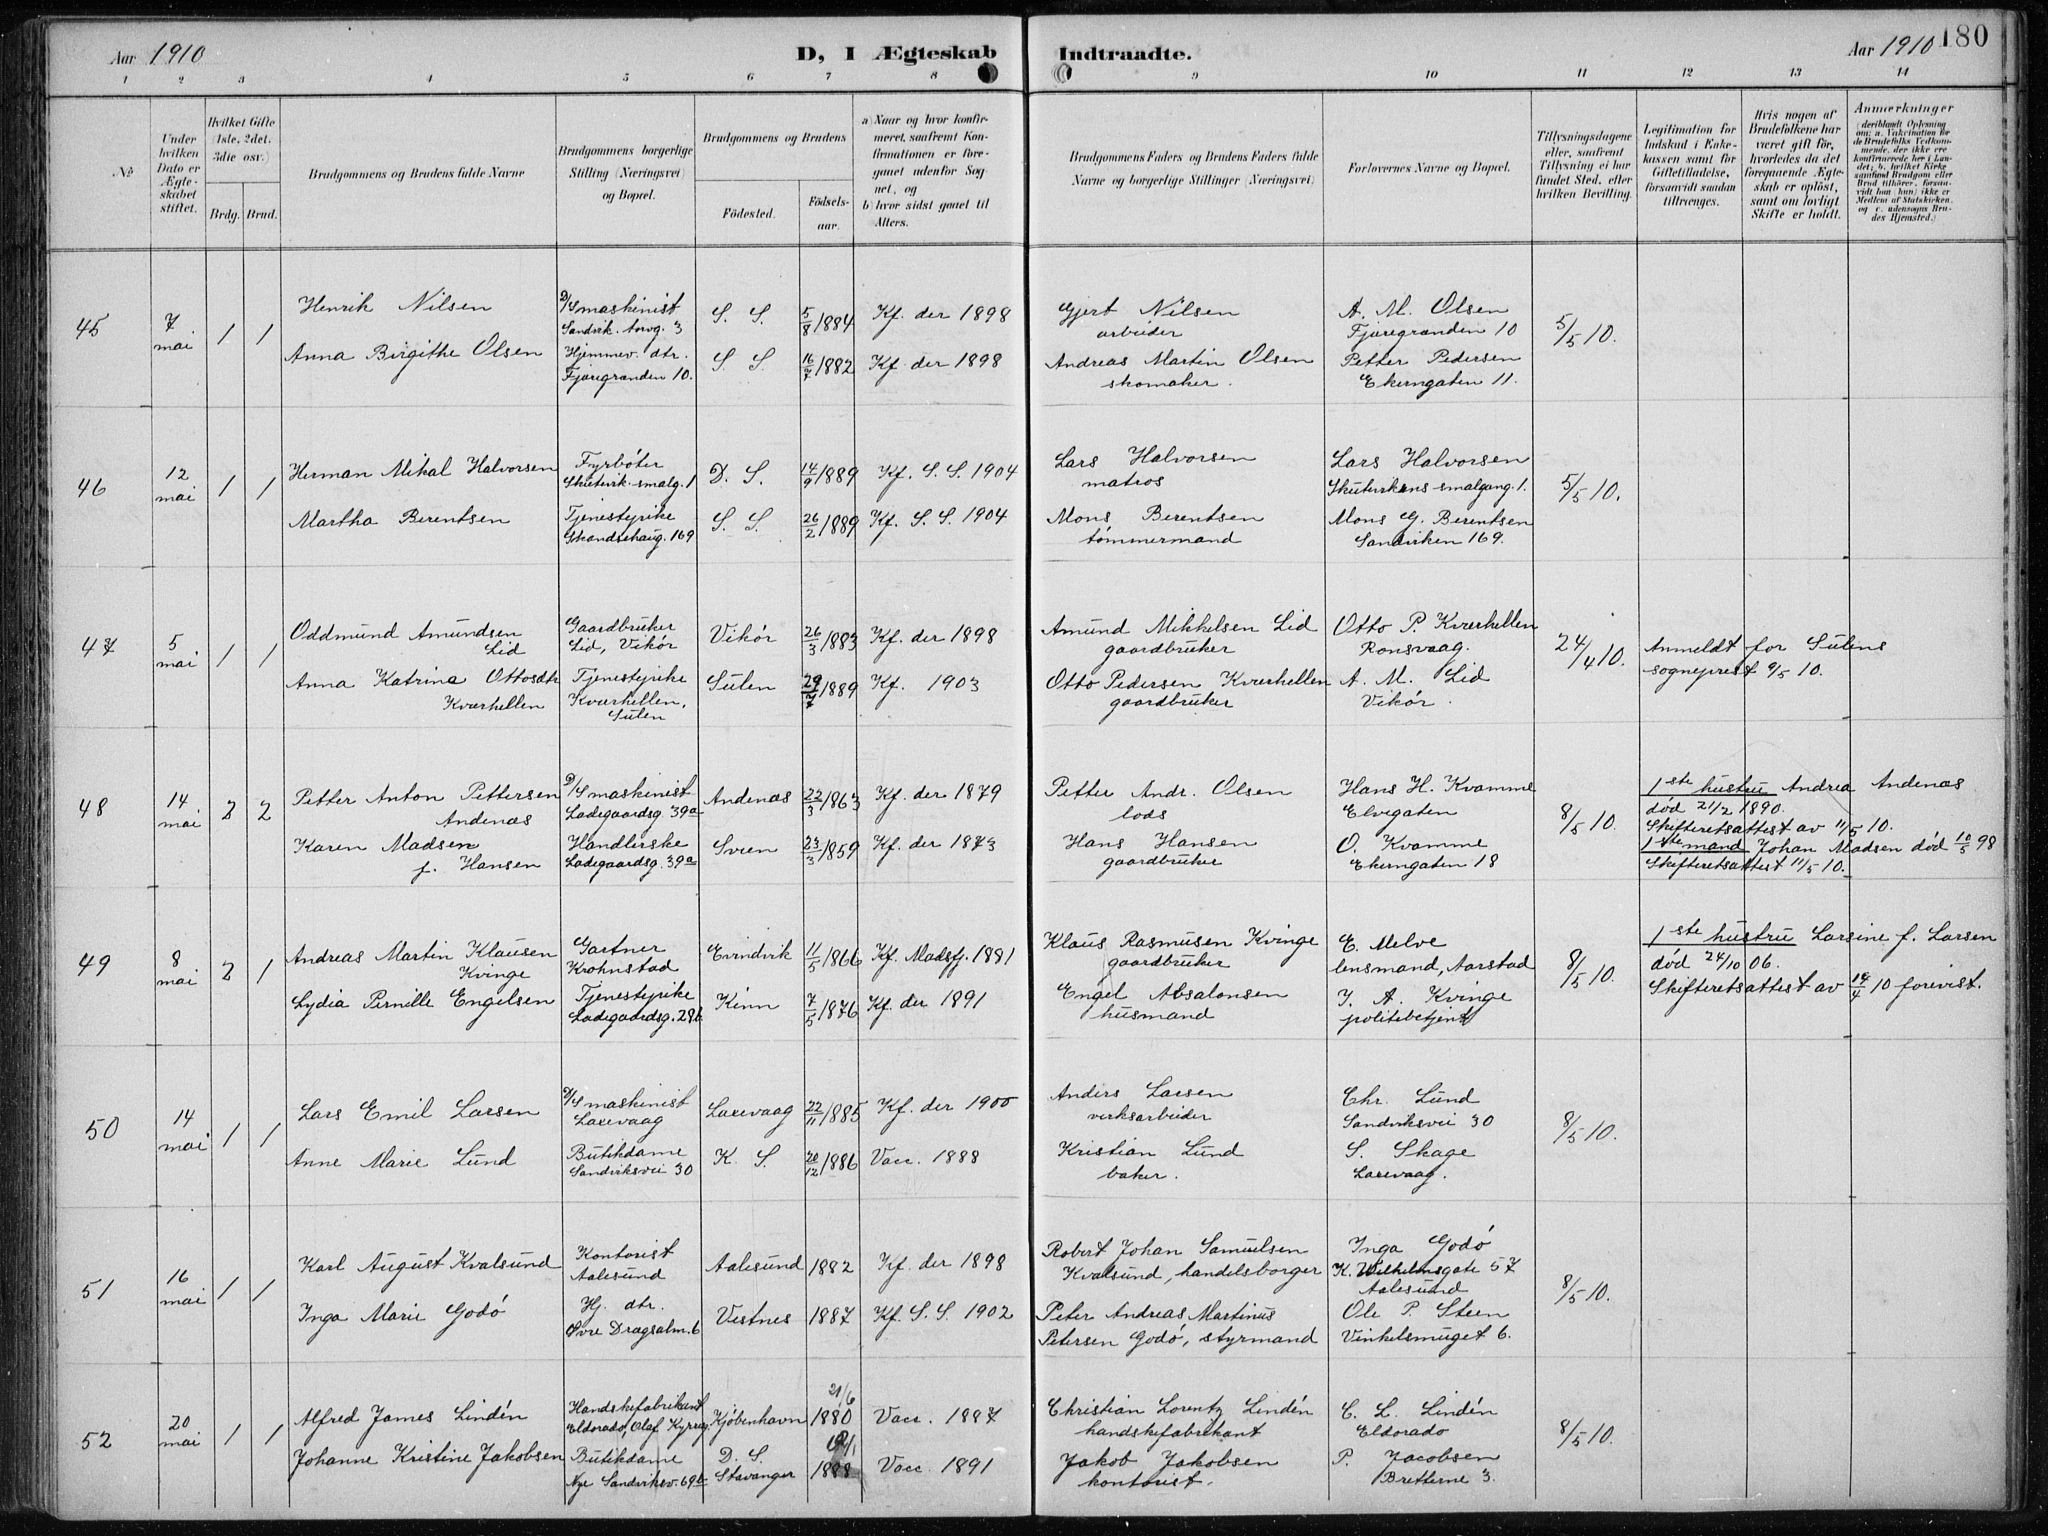 Aar 1910
D, I Ægteskab
Indtraadte.
Aar 1910
180
1 2 3 4 5 6 7 8 9 10 11 12 13 14
No.
Under hvilken Dato er Ægteskabet stiftet.
Hvilket Gifte (1ste, 2det, 3die osv.)
Brdg. Brud.
Brudgommens og Brudens fulde Navne
Brudgommens borgerlige Stilling (Næringsvei) og Bopæl.
Brudgommens og Brudens
Fødested.
Fødselsaar.
a) Naar og hvor konfirmeret, saafremt Konfirmationen er foregaaet udenfor Sognet, og
b) hvor sidst gaaet til Alters.
Brudgommens Faders og Brudens Faders fulde Navne og borgerlige Stillinger (Næringsvei)
Forlovernes Navne og Bopæl.
Tillysningsdagene eller, saafremt Tillysning ei har fundet Sted, efter hvilken Bevilling.
Legitimation for Indskud i Enkekassen samt for Giftetilladelse, forsaavidt saadan tiltrænges.
Hvis nogen af Brudefolkene har været gift før, hvorledes da det foregaaende Ægteskab er opløst, samt om lovligt Skifte er holdt.
Anmærkninger (deriblandt Oplysning om: a. Vakcination for de Brudefolks Vedkommende, der ikke ere konfirmerede her i Landet; b. hvilket Kirkesamfund Brudgom eller Brud tilhører, forsaavidt han (hun) ikke er Medlem af Statskirken, og c. udensogns Brudes Hjemsted.)
45 7 mai 1 1
Henrik Nilsen D/S maskinist Sandvik. torvg. 3 S. S. 5/8 1884 Kf. der 1898 Gjert Nilsen arbeider A. M. Olsen Fjæregranden 10 5/5 10.
Anna Birgithe Olsen Hjemmev. dtr. Fjæregranden 10. S. S. 16/7 1882 Kf. der 1898 Andreas Martin Olsen skomaker. Petter Pedersen Ekerngaten 11.
46 12 mai 1 1
Herman Mikal Halvorsen Fyrbøter Skutevik. smalg. 1 D. S. 14/9 1889 Kf. S. S. 1904 Lars Halvorsen matros Lars Halvorsen Skutevikens smalgang. 1. 5/5 10.
Martha Berentsen Tjenestepike Skandsehaug. 169 S. S. 26/2 1889 Kf. S. S. 1904 Mons Berentsen tømmermand Mons G. Berentsen Sandviken 169.
47 5 mai 1 1
Oddmund Amundsen Lid Gaardbruker Lid, Vikør Vikør 26/3 1883 Kf. der 1898 Amund Mikkelsen Lid gaardbruker Otto P. Kværhellen Ronsvaag. 24/4 10. Anmeldt for Sulens sogneprest 9/5 10.
Anna Katrina Ottosdtr Kværhellen Tjenestepike Kværhellen, Sulen Sulen 1889 Kf. 1903 Otto Pedersen Kværhellen gaardbruker A. M. Lid Vikør.
48 14 mai 2 2
Petter Anton Pettersen Andenæs D/S maskinist Ladegaardsg. 39a Andenæs 22/3 1863 Kf. der 1879 Petter Andr. Olsen lods Hans H. Kvamme Elvegaten 8/5 10. 1ste hustru Andrea Andenæs død 21/2 1890. Skifteretsattest av 11/5 10.
Karen Madsen f. Hansen Handlerske Ladegaardsg. 39a Svren 23/3 1859 Kf. der 1873 Hans Hansen gaardbruker O. Kvamme Ekerngaten 18 1ste mand Johan Madsen død 10/5 98 Skifteretsattest 11/5 10.
49 8 mai 2 1
Andreas Martin Klausen Kvinge Gartner Krohnstad Evindvik 11/5 1866 Kf. Masfj. 1881 Klaus Rasmusen Kvinge gaardbruker E. Melve lensmand, Aarstad 8/5 10. 1ste hustru Larsine f. Larsen død 24/10 06. Skifteretsattest av 14/4 10 forevist.
Lydia Pernille Engelsen Tjenestepike Ladegaardsg. 28b Kinn 7/5 1876 Kf. der 1891 Engel Absalonsen husmand I. A. Kvinge politibetjent
50 14 mai 1 1
Lars Emil Larsen D/S maskinist Laxevaag Laxevaag 22/11 1885 Kf. der 1900 Anders Larsen verksarbeider Chr. Lund Sandviksvei 30 8/5 10.
Anne Marie Lund Butikdame Sandviksvei 30 K. S. 20/12 1886 Vacc. 1888 Kristian Lund baker. S. Skage Laxevaag.
51 16 mai 1 1
Karl August Kvalsund Kontorist Aalesund Aalesund 1882 Kf. der 1898 Robert Johan Samuelsen Kvalsund, handelsborger Inga Godø K. Wilhelmsgate 57 Aalesund 8/5 10.
Inga Marie Godø Hj. dtr. Øvre Dragsalm. 6 Vestnes 1887 Kf. S. S. 1902 Peter Andreas Martinus Petersen Godø, styrmand Ole P. Steen Vinkelsmuget 6.
52 20 mai 1 1
Alfred James Lindén Handskefabrikant Eldorado, Olaf Kyrreg. Kjøbenhavn 21/6 1880 Vacc. 1887 Christian Lorentz Lindén handskefabrikant C. L. Lindén Eldorado 8/5 10.
Johanne Kristine Jakobsen Butikdame Nye Sandviksv. 69b D. S. Stavanger 1888 Vacc. 1891 Jakob Jakobsen kontorist. P. Jacobsen Bretterne 3.